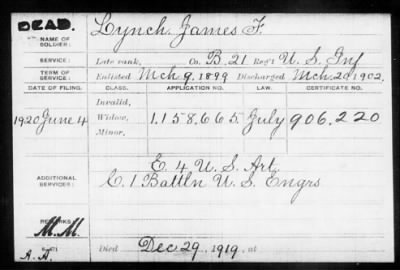 DEAD.
NAME OF SOLDIER: Lynch, James F.
SERVICE: Late rank, Co. B, 21 Reg't U. S. Inf
TERM OF SERVICE: Enlisted Mch 9, 1899 Discharged Mch. 20 1902,
DATE OF FILING. CLASS. APPLICATION NO. LAW. CERTIFICATE NO.
Invalid,
1920 June 4 Widow, 1,158,665 July 906,220
Minor,
ADDITIONAL SERVICES: E. 4 U. S. Art.
C. 1 Battln U. S. Engrs
REMARKS:
M. M.
Died Dec 29, 1919, at
A. A.